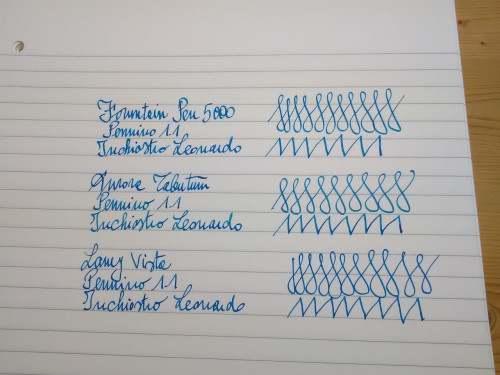 Fountain Pen 5000
Pennino 1.1
Inchiostro Leonardo
Aurora Talentum
Pennino 1.1
Inchiostro Leonardo
Lamy Vista
Pennino 1.1
Inchiostro Leonardo